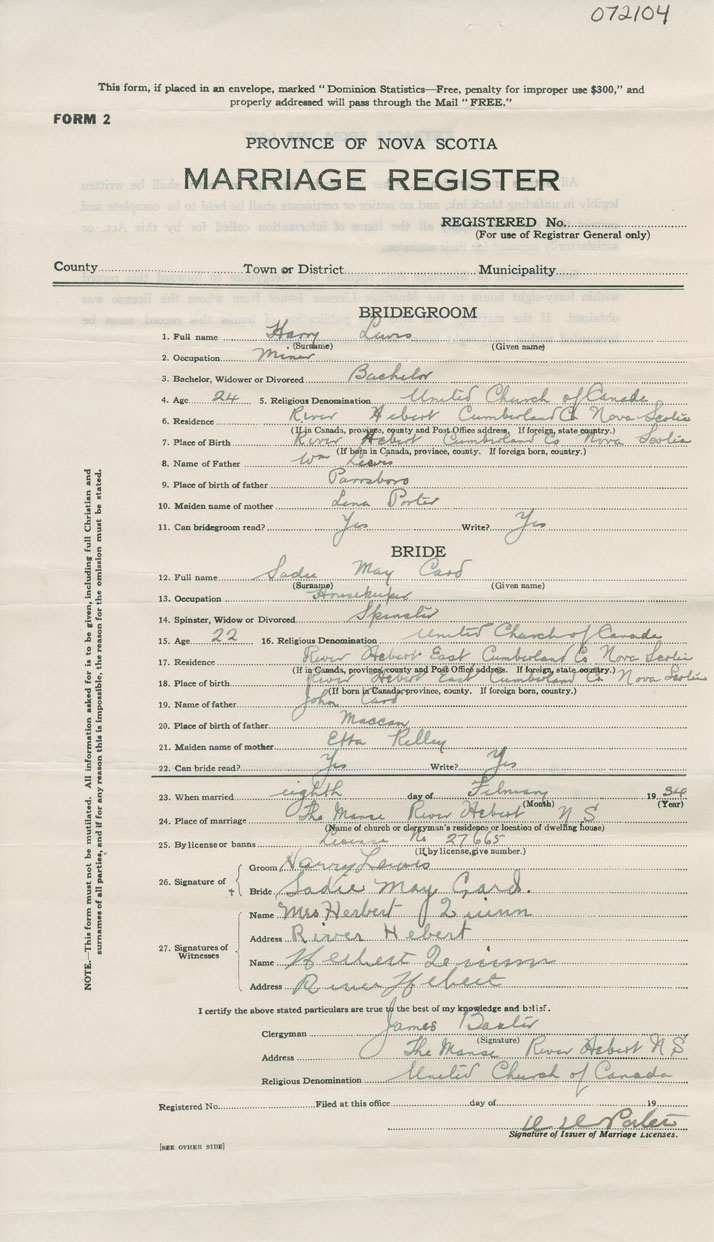 072104
This form, if placed in an envelope, marked "Dominion Statistics—Free, penalty for improper use $300," and
properly addressed will pass through the Mail "FREE."
FORM 2
PROVINCE OF NOVA SCOTIA
MARRIAGE REGISTER
REGISTERED No.
(For use of Registrar General only)
County Town or District Municipality
BRIDEGROOM
1. Full name Harry Lewis
(Surname) (Given name)
2. Occupation Miner
3. Bachelor, Widower or Divorced Bachelor
4. Age 24 5. Religious Denomination United Church of Canada
6. Residence River Hebert Cumberland Co Nova Scotia
(If in Canada, province, county and Post Office address. If foreign, state country.)
7. Place of Birth River Hebert Cumberland Co Nova Scotia
(If born in Canada, province, county. If foreign born, country.)
8. Name of Father Wm Lewis
9. Place of birth of father Parrsboro
10. Maiden name of mother Lena Porter
11. Can bridegroom read? Yes Write? Yes
BRIDE
12. Full name Sadie May Card
(Surname) (Given name)
13. Occupation Housekeeper
14. Spinster, Widow or Divorced Spinster
15. Age 22 16. Religious Denomination United Church of Canada
17. Residence River Hebert East Cumberland Co Nova Scotia
(If in Canada, province, county and Post Office address. If foreign, state country.)
18. Place of birth River Hebert East Cumberland Co Nova Scotia
(If born in Canada, province, county. If foreign born, country.)
19. Name of father John Card
20. Place of birth of father Maccan
21. Maiden name of mother Etta Kelley
22. Can bride read? Yes Write? Yes
23. When married eighth day of February 1934
(Month) (Year)
24. Place of marriage The Manse River Hebert N S
(Name of church or clergyman's residence or location of dwelling house)
25. By license or banns License No 27665
(If by license, give number.)
26. Signature of Groom Harry Lewis
Bride Sadie May Card.
27. Signatures of Witnesses
Name Mrs Herbert Quinn
Address River Hebert
Name Herbert Quinn
Address River Hebert
I certify the above stated particulars are true to the best of my knowledge and belief.
Clergyman James Baxter
(Signature)
Address The Manse River Hebert N S
Religious Denomination United Church of Canada
Registered No. Filed at this office day of 19
Porter
Signature of Issuer of Marriage Licenses.
[SEE OTHER SIDE]
NOTE.—This form must not be mutilated. All information asked for is to be given, including full Christian and
surnames of all parties, and if for any reason this is impossible, the reason for the omission must be stated.